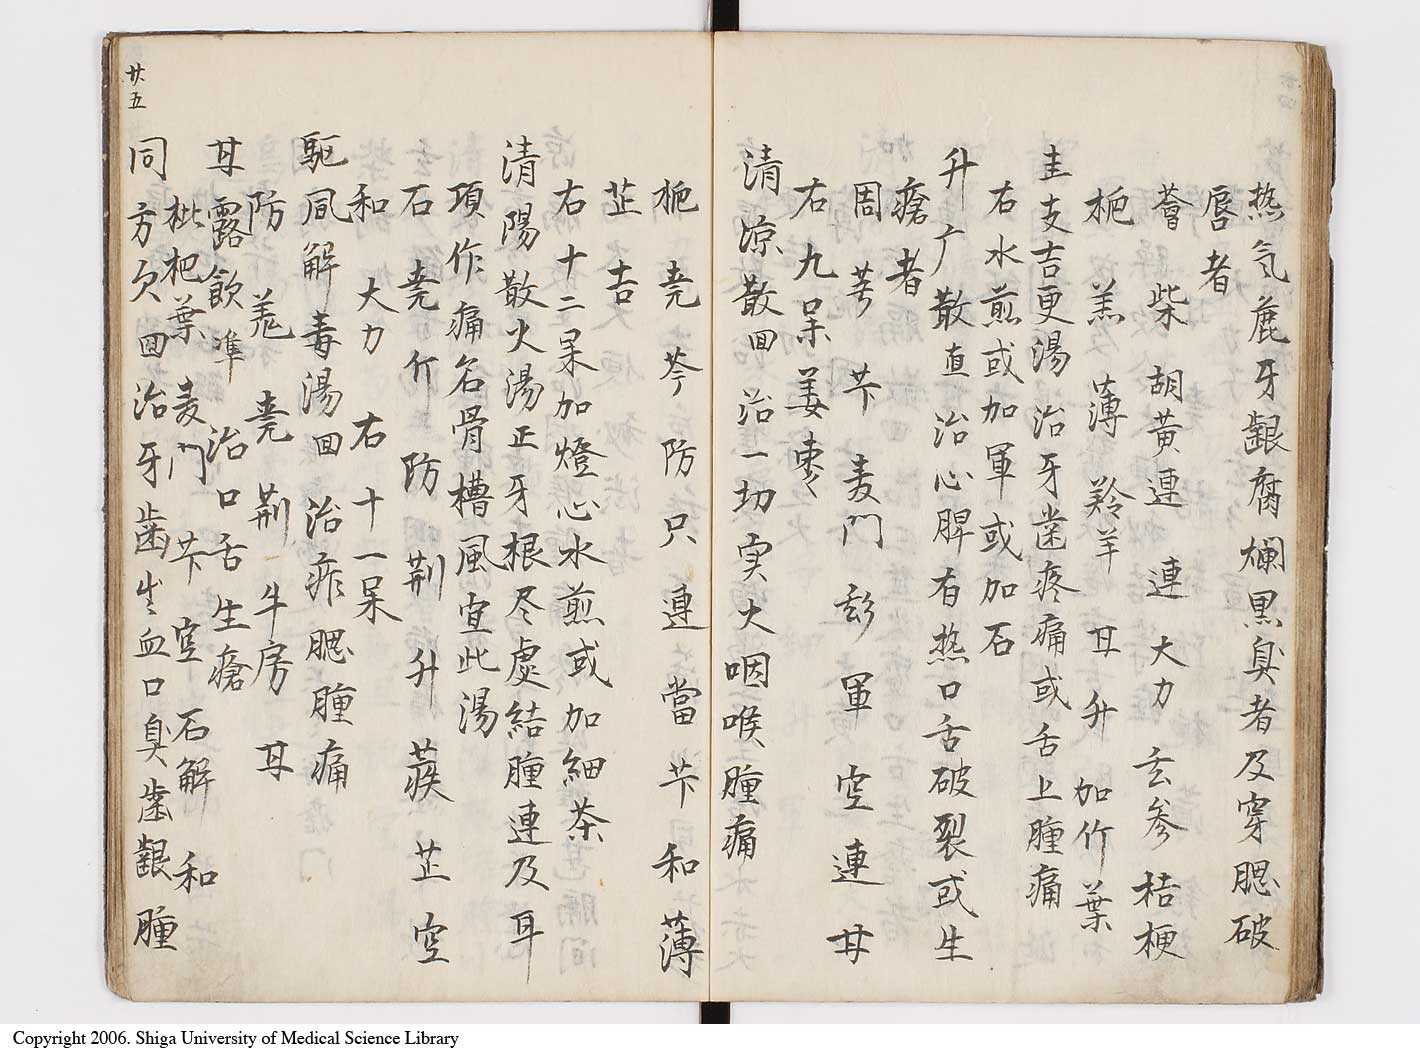 热气鹿牙齦腐爛黒臭者及穿腮破
唇者
薈柴胡黄連 連大力玄参桔梗
栀羔薄羚羊甘升加竹葉
圭支吉更湯治牙歯疼痛或舌上腫痛
右水煎或加軍或加石
升广散直治心脾有热口舌破裂或生
瘡者
周芎芐麦門彭軍空連甘
右九呆姜棗
清凉散回治一切実大咽喉腫痛
栀尭芩防只連當芐和薄
芷吉
右十二呆加燈心水煎或加細茶
清陽散火湯正牙根尽處結腫連及耳
項作痛名骨槽風宜此湯
石尭介防荆升蒺芷空
和大力右十一呆
駈凮解毒湯回治痄腮腫痛
防羗尭荆牛房甘
甘露飲準治口舌生瘡
枇杷葉麦門芐空石解和
同方欠回治牙歯生血口臭歯齦腫
廿五
Copyright 2006. Shiga University of Medical Science Library